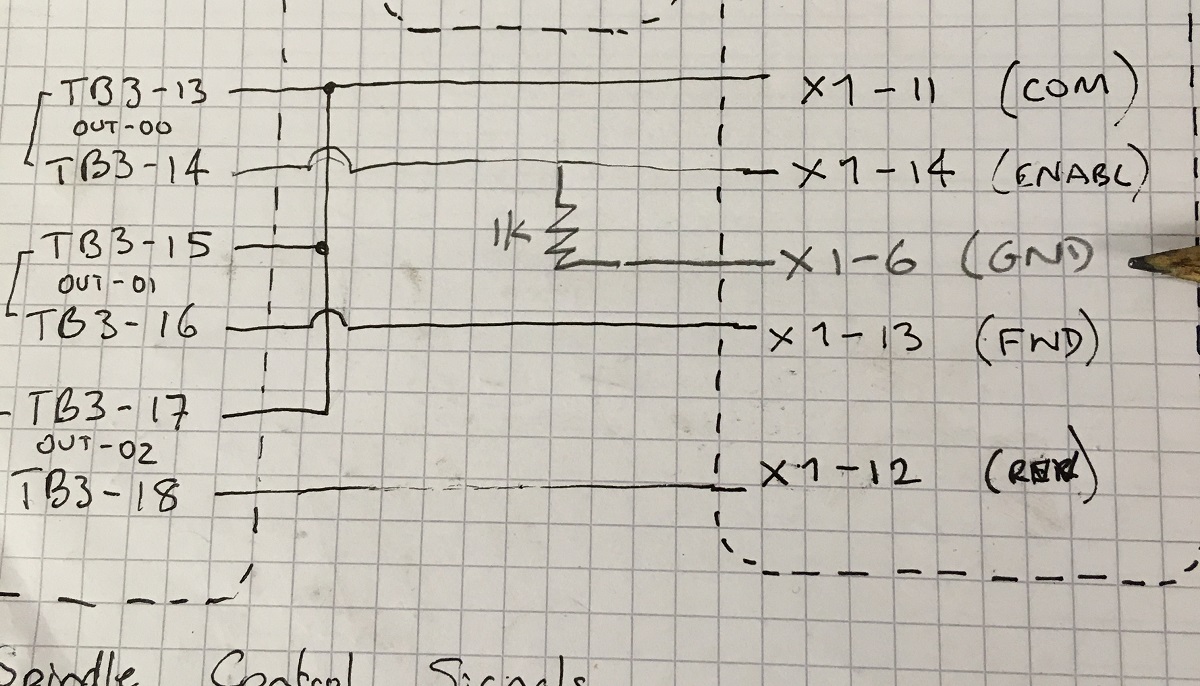 TB3-13 X1-11 (COM)
OUT-00
TB3-14 X1-14 (ENABL)
1K
TB3-15 X1-6 (GND
OUT-01
TB3-16 X1-13 (FWD)
TB3-17
OUT-02
TB3-18 X1-12
Spindle Control Signals